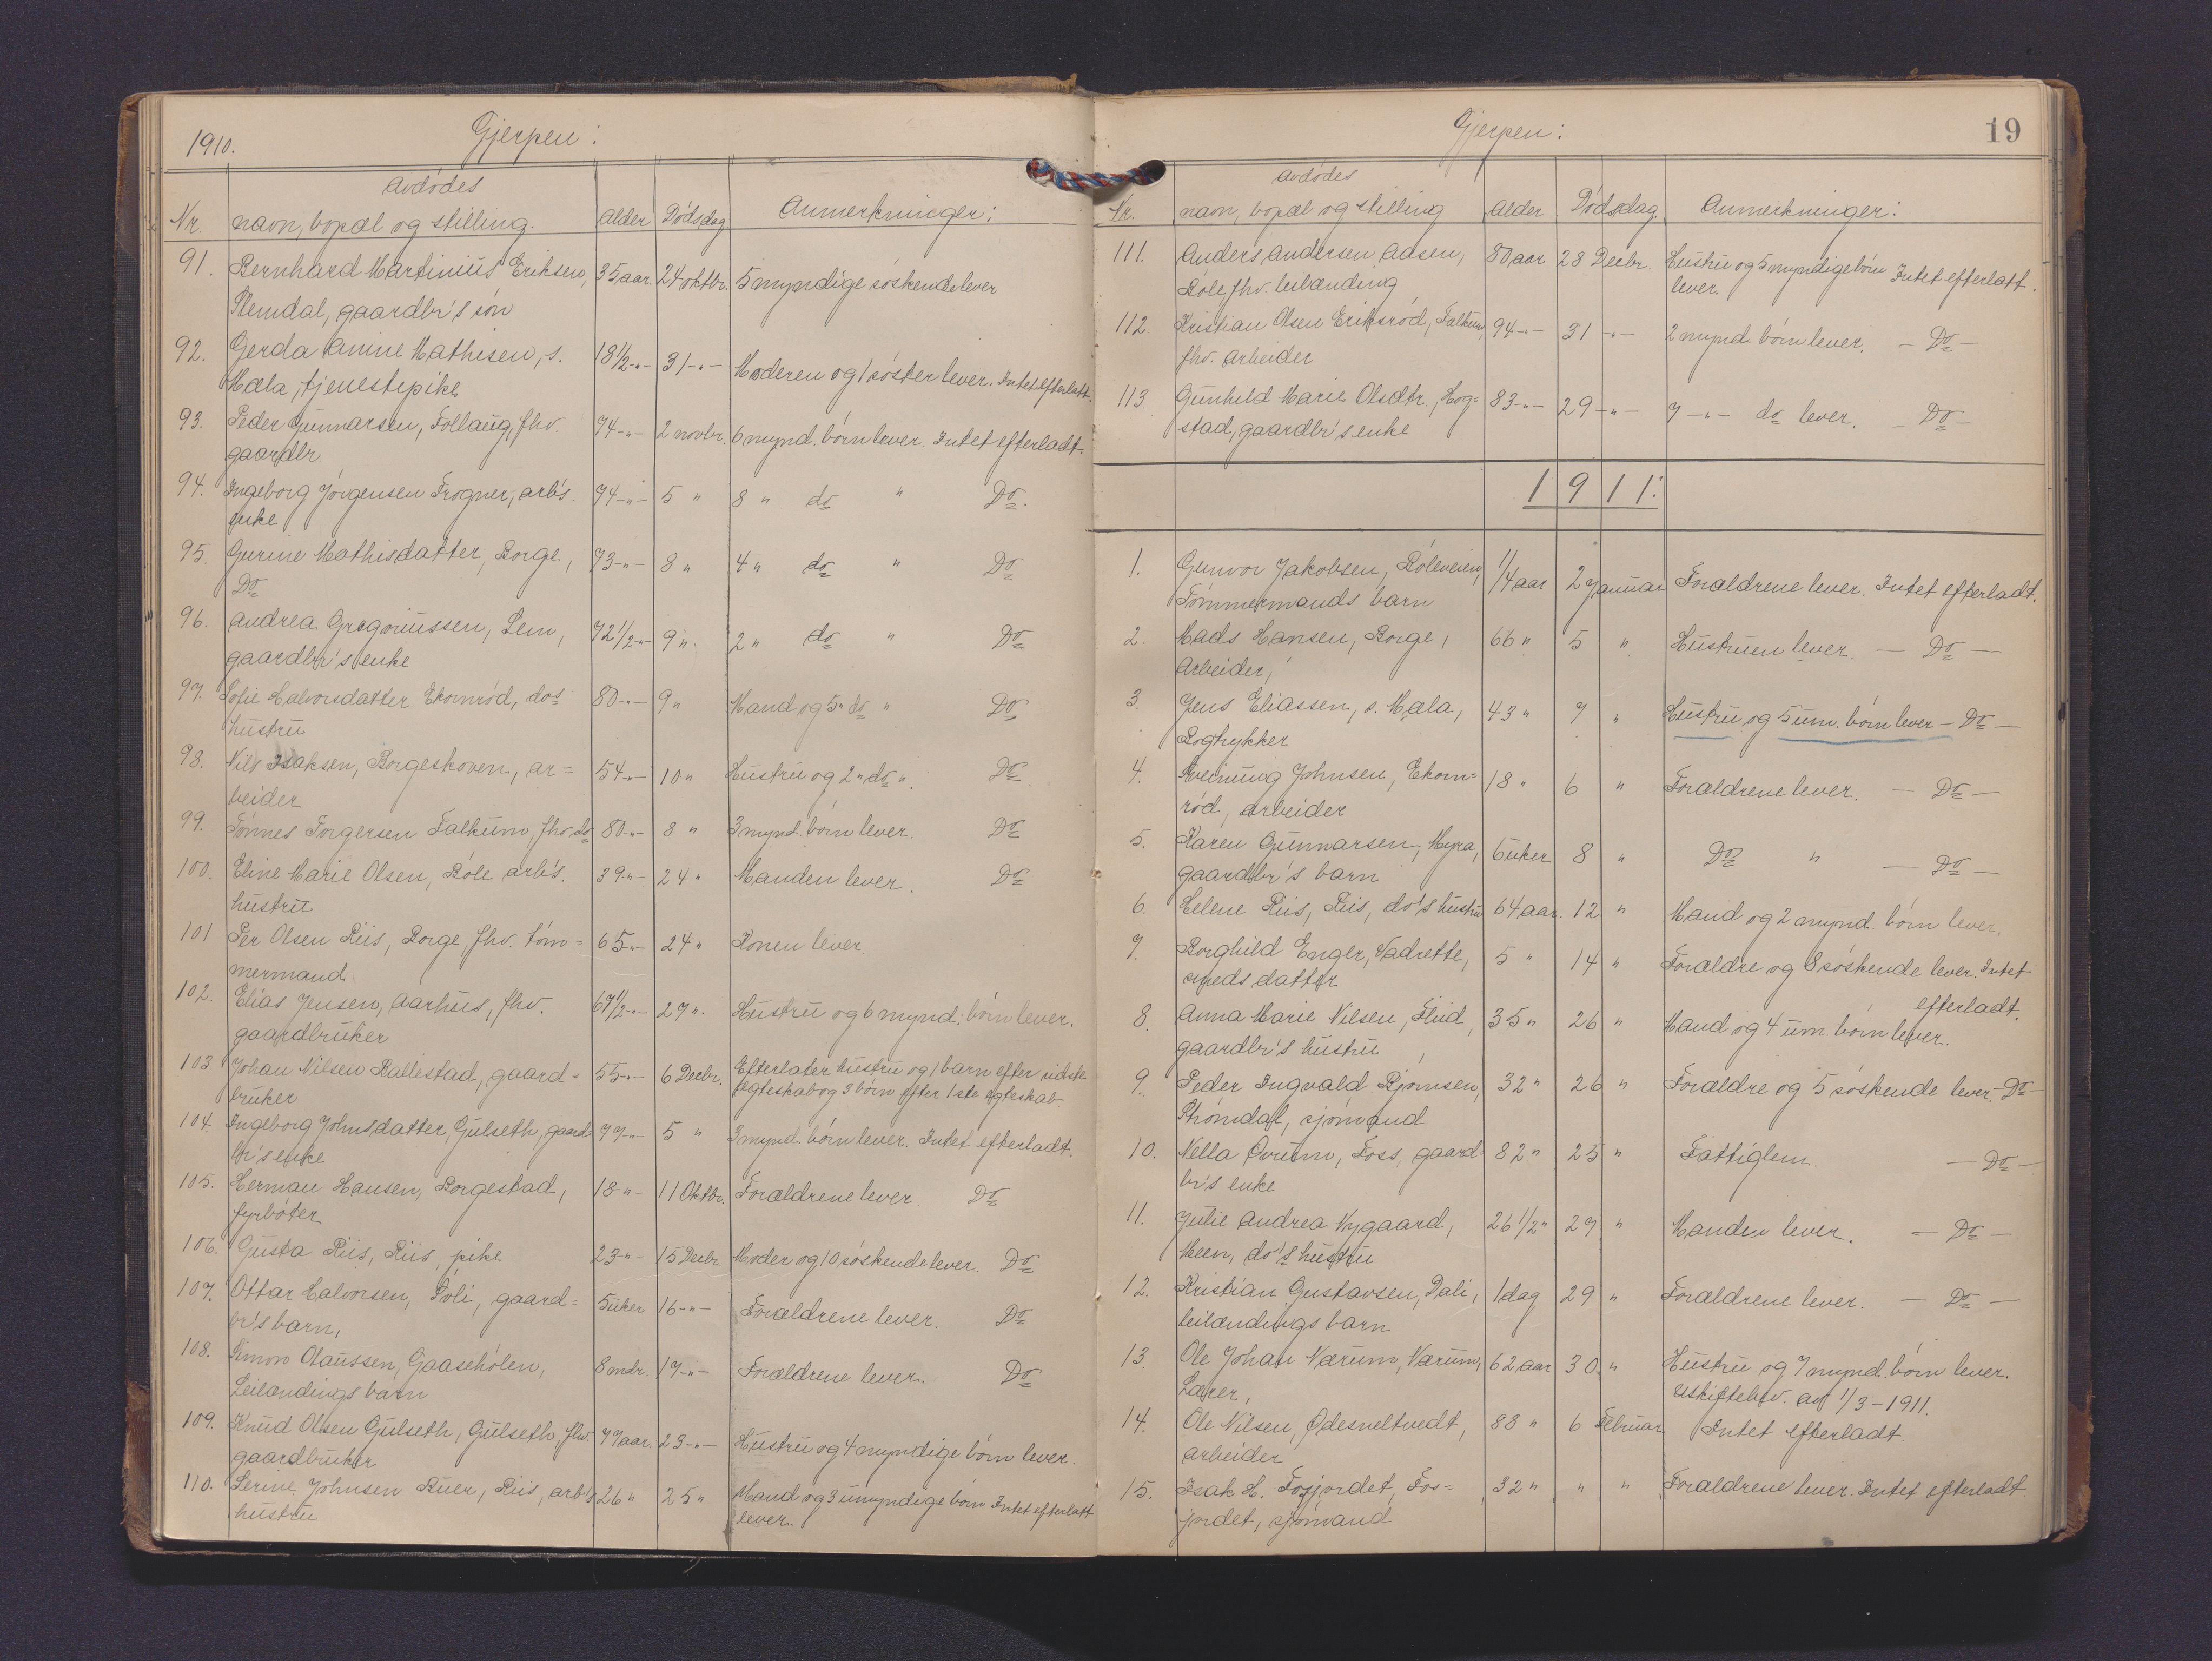 1910.
Gjerpen:
Avdödes
Nr. navn, bopæl og stilling. Alder Dödsdag Anmerkninger:
91. Bernhard Martinius Eriksen, 35 aar. 24 oktbr. 5 myndige söskende lever
Stemdal, gaardbr's sön
92. Gerda Amine Mathisen, s. 18 1/2 -"- 31 -"- Moderen og 1 söster lever. Intet efterlatt.
Mæla, tjenestepike
93. Peder Gunnarsen, Follaug, fhv. 74 -"- 2 novbr. 6 mynd. börn lever. Intet efterladt.
gaardbr
94. Ingeborg Jörgensen Frogner, arb's. 74 -"- 5 " 8 " do " Do.
enke
95. Gurine Mathisdatter, Borge, 73 -"- 8 " 4 " do " Do
Do
96. Andrea Gregoriussen, Lem, 72 1/2 -"- 9 " 2 " do " Do
gaardbr's enke
97. Sofie Halvorsdatter Ekornröd, dos 80 -"- 9 " Mand og 5 " do " Do
hustru
98. Nils Isaksen, Borgeskoven, ar= 54 -"- 10 " Hustru og 2 " do ". Do
beider
99. Tönnes Torgersen Falkum, fhv. do 80 -"- 8 " 3 mynd. börn lever. Do
100. Eline Marie Olsen, Böle arb's. 39 -"- 24 " Manden lever. Do
hustru
101 Per Olsen Riis, Borge, fhv. töm= 65 -"- 24 " Konen lever.
mermand.
102. Elias Jensen, Aarhus, fhv. 67 1/2 -"- 27 ". Hustru og 6 mynd. börn lever.
gaardbruker
103. Johan Nilsen Ballestad, gaard= 55 -"- 6 Decbr. Efterlater hustru og 1 barn efter sidste
bruker ægteskab og 3 börn efter 1ste ægteskab.
104. Ingeborg Johnsdatter, Gulseth, gaard 77 -"- 5 " 3 mynd. börn lever. Intet efterladt.
br's enke
105. Herman Hansen, Borgestad, 18 -"- 11 Oktbr. Forældrene lever. Do
fyrböter
106. Gusta Riis, Riis, pike 23 -"- 15 Decbr Moder og 10 söskende lever. Do
107. Ottar Halvorsen, Poli, gaard= 5 uker 16 -"- Forældrene lever. Do
br's barn,
108. Simon Olaussen, Gaasehölen, 8 mdr. 17 -"- Forældrene lever. Do
Leilændings barn
109. Knud Olsen Gulseth, Gulseth, fhv. 77 aar. 23 -"- Hustru og 4 myndige börn lever.
gaardbruker
110. Serine Johnsen Buer, Riis, arb's 26 " 25 " Mand og 3 umyndige börn Intet efterlatt
hustru lever.
Gjerpen: 19
Avdödes
Nr. navn, bopæl og stilling Alder Dödsdag. Anmerkninger:
111. Anders Andersen Aasen, 80 aar 28 Decbr. Hustru og 5 myndige börn Intet efterlatt.
Böle fhv. leilænding lever.
112. Kristian Olsen Eriksröd, Falkum, 94 -"- 31 -"- 2 mynd. börn lever. - Do -
fhv. arbeider
113. Gunhild Marie Olsdtr., Hog= 83 -"- 29 -"- 7 -"- do lever. - Do -
stad, gaardbr's enke
1911:
1. Gunvor Jakobsen, Böleveien, 1/4 aar 2 Januar Forældrene lever. Intet efterladt.
Tömmermands barn
2. Mads Hansen, Borge, 66 " 5 " Hustruen lever. - Do -
Arbeider,
3. Jens Eliassen, s. Mæla, 43 " 7 " Hustru og 5 um. börn lever - Do -
Bogtrykker
4. Sveinung Johnsen, Ekorn= 18 " 6 " Forældrene lever. - Do -
röd, arbeider
5. Karen Gunnarsen, Myra, 6 uker 8 " Do " - Do -
gaardbr's barn
6. Helene Riis, Riis, do's hustru 64 aar. 12 " Mand og 2 mynd. börn lever.
7. Borghild Enger, Vadrette, 5 " 14 " Forældre og 8 söskende lever. Intet
smeds datter efterladt.
8. Anna Marie Nilsen, Flid, 35 " 26 " Mand og 4 um. börn lever.
gaardbr's hustru
9. Peder Ingvald Bjørnsen, 32 " 26 " Forældre og 5 söskende lever. - Do -
Strömdal, sjömand
10. Nella Ovrum, Foss, gaard= 82 " 25 " Fattiglem. - Do -
br's enke
11. Julie Andrea Nygaard, 26 1/2 " 27 " Manden lever. - Do -
Meen, do's hustru
12. Kristian Gustavsen, Dali, 1 dag 29 " Forældrene lever. - Do -
leilændings barn
13. Ole Johan Nærum, Nærum, 62 aar 30. " Hustru og 7 mynd. börn lever.
Lærer, Uskiftebev. av 1/3 - 1911.
14. Ole Nilsen, Ødesneltvedt, 88 " 6 Februar Intet efterladt.
arbeider
15. Isak H. Fosjordet, Fos= 32 " " " Forældrene lever. Intet efterladt
jordet, sjömand